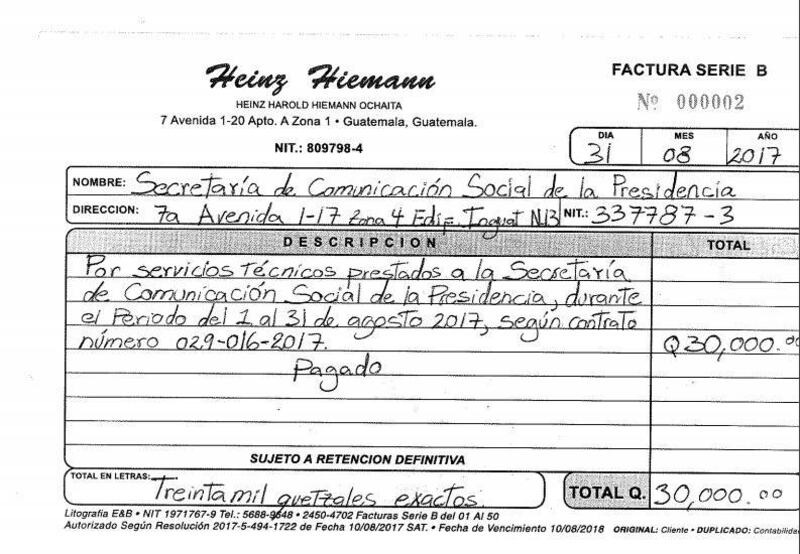 Heinz Hiemann
HEINZ HAROLD HIEMANN OCHAITA
7 Avenida 1-20 Apto. A Zona 1 • Guatemala, Guatemala.
NIT.: 809798-4
FACTURA SERIE B
Nº 000002
DIA MES AÑO
31 08 2017
NOMBRE: Secretaría de Comunicación Social de la Presidencia
DIRECCION: 7a Avenida 1-17 Zona 4 Edif. Inguat N.13 NIT.: 337787-3
DESCRIPCION TOTAL
Por servicios técnicos prestados a la Secretaría
de Comunicación Social de la Presidencia, durante
el Periodo del 1 al 31 de agosto 2017, según contrato
número 029-016-2017. Q30,000.00
Pagado
SUJETO A RETENCION DEFINITIVA
TOTAL EN LETRAS: Treinta mil quetzales exactos. TOTAL Q. 30,000.00
Litografía E&B • NIT 1971767-9 Tel.: 5688-9648 • 2450-4702 Facturas Serie B del 01 Al 50
Autorizado Según Resolución 2017-5-494-1722 de Fecha 10/08/2017 SAT. • Fecha de Vencimiento 10/08/2018 ORIGINAL: Cliente • DUPLICADO: Contabilidad